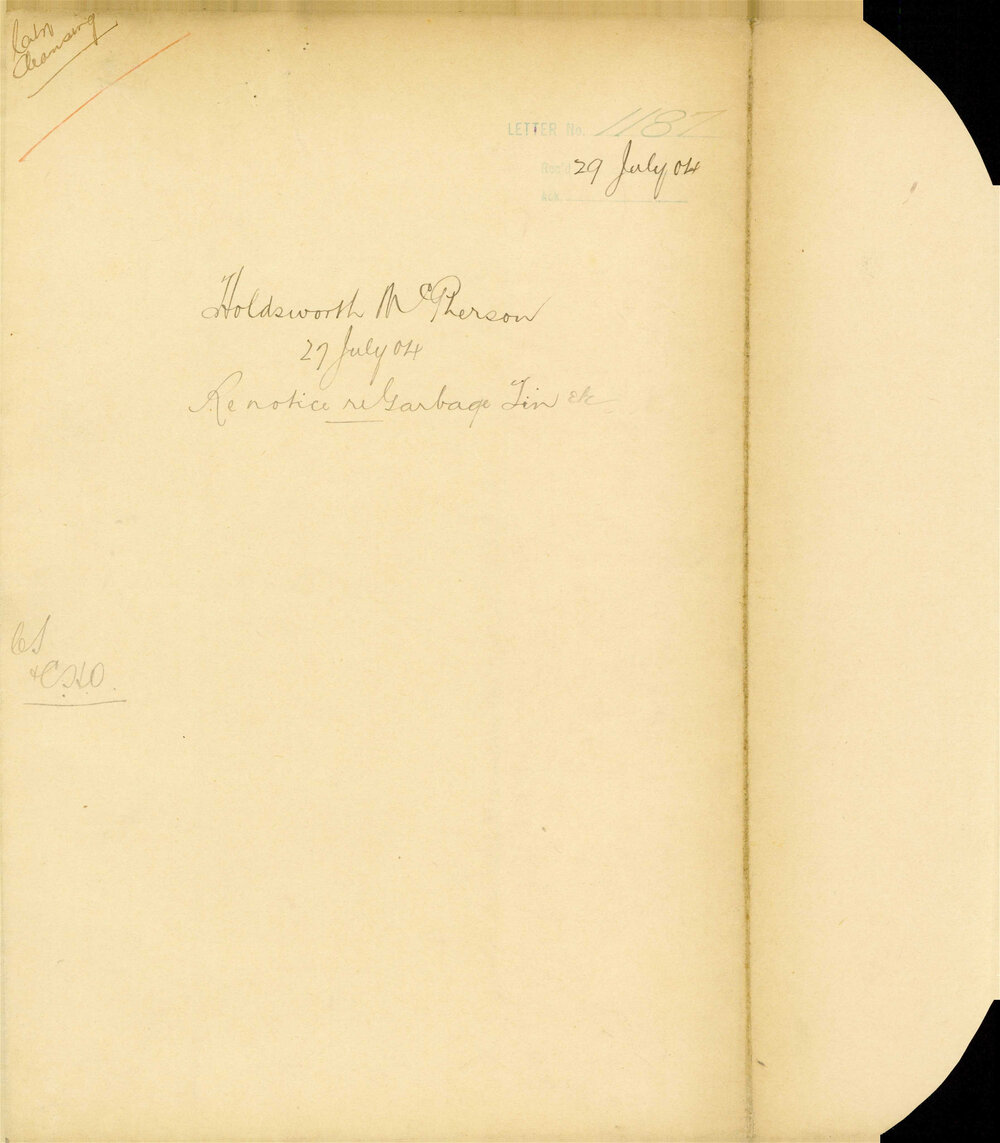 Cleansing
LETTER No. 1187
Rec'd 29 July 04
Ack.
Holdsworth McPherson
27 July 04
Re notice re Garbage Tin etc
CS
& C.H.O.